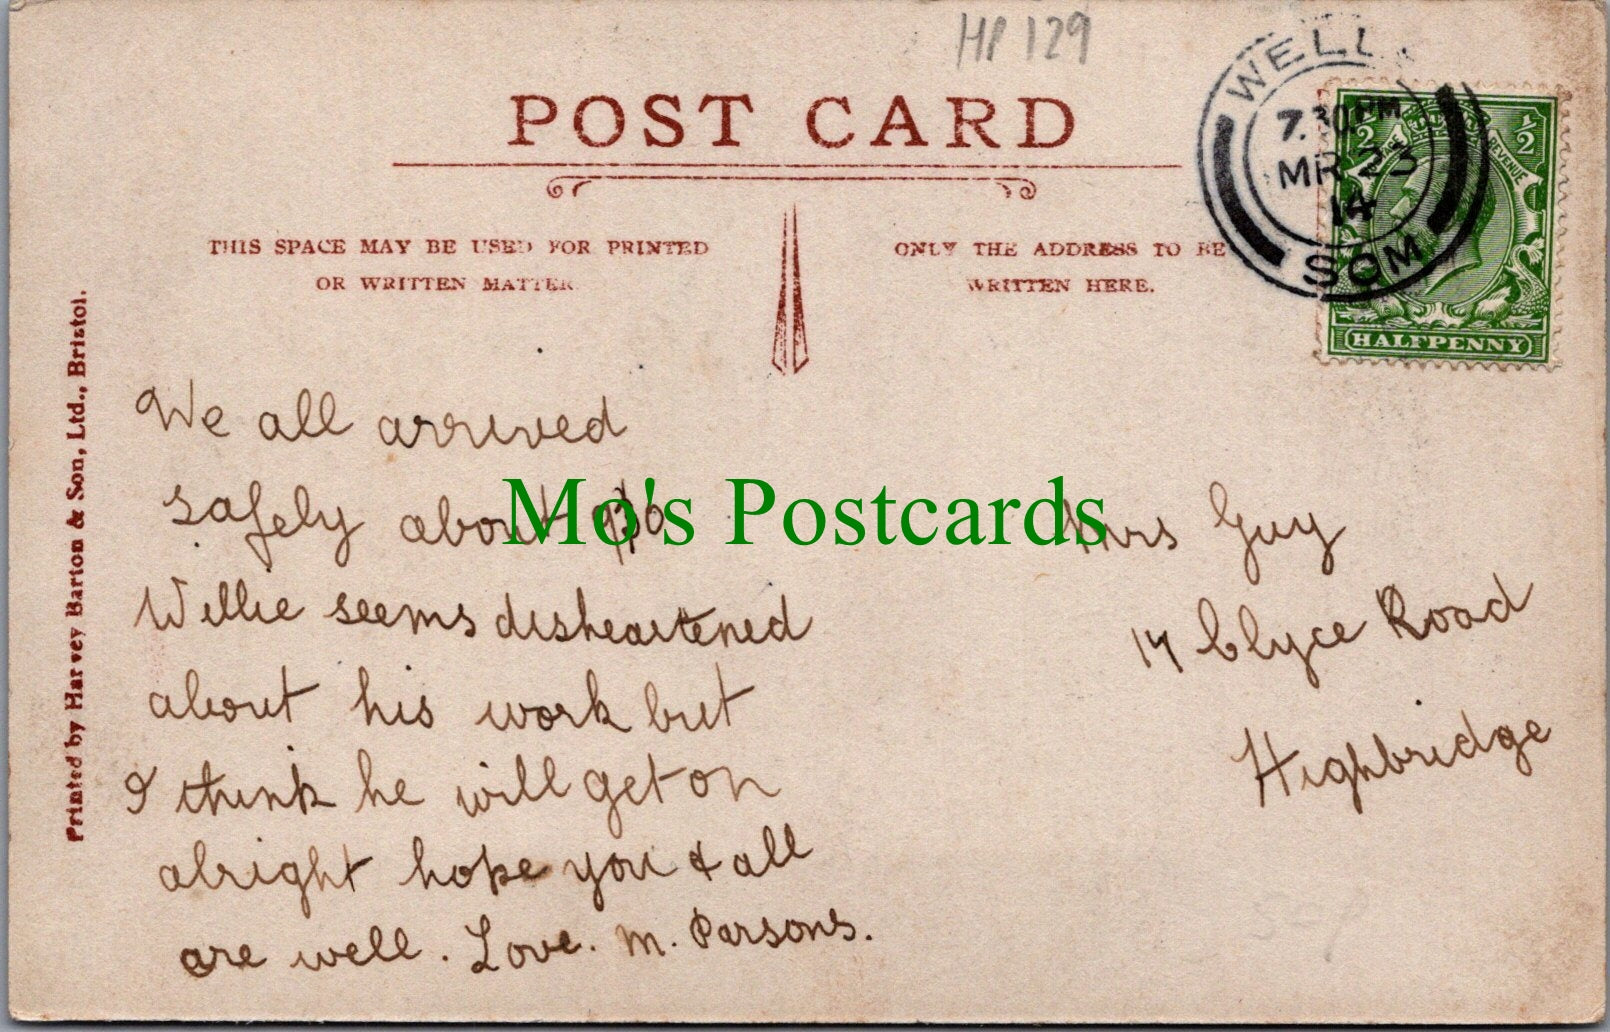 HP 129
POST CARD
THIS SPACE MAY BE USED FOR PRINTED
OR WRITTEN MATTER
ONLY THE ADDRESS TO BE
WRITTEN HERE.
WELL
7.30 PM
MR 23
14
SOM
½ ½
REVENUE
HALFPENNY
Printed by Harvey Barton & Son, Ltd., Bristol.
We all arrived
safely about
Willie seems disheartened
about his work but
I think he will get on
alright hope you & all
are well. Love. M. Parsons.
Mo's Postcards
Mrs Guy
14 Clyce Road
Highbridge